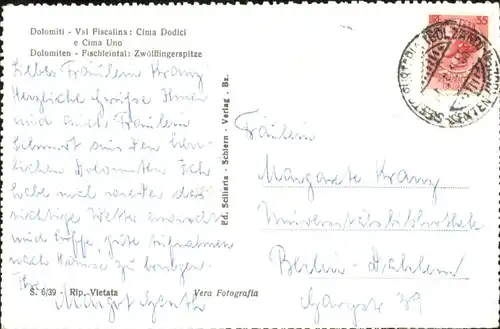 Dolomiti - Val Fiscalina: Cima Dodici
e Cima Uno
Dolomiten - Fischleintal: Zwölfingerspitze
Liebes Fräulein Kranz
Herzliche Grüße Ihnen
und auch Fräulein
aus den herr-
lichen Dolomiten. Ich
habe mal wieder das
richtige Wetter erwischt
und hoffe, gute Aufnahmen
nach Hause zu bringen.
Ihre
Margot
S. 6/39 - Rip. Vietata
Vera Fotografia
Ed. Sciliaria - Schlern - Verlag . Bz.
35
BOLZANO
Fräulein
Margarete Kranz
Universitätsbibliothek
Berlin-Dahlem
Garystr 39